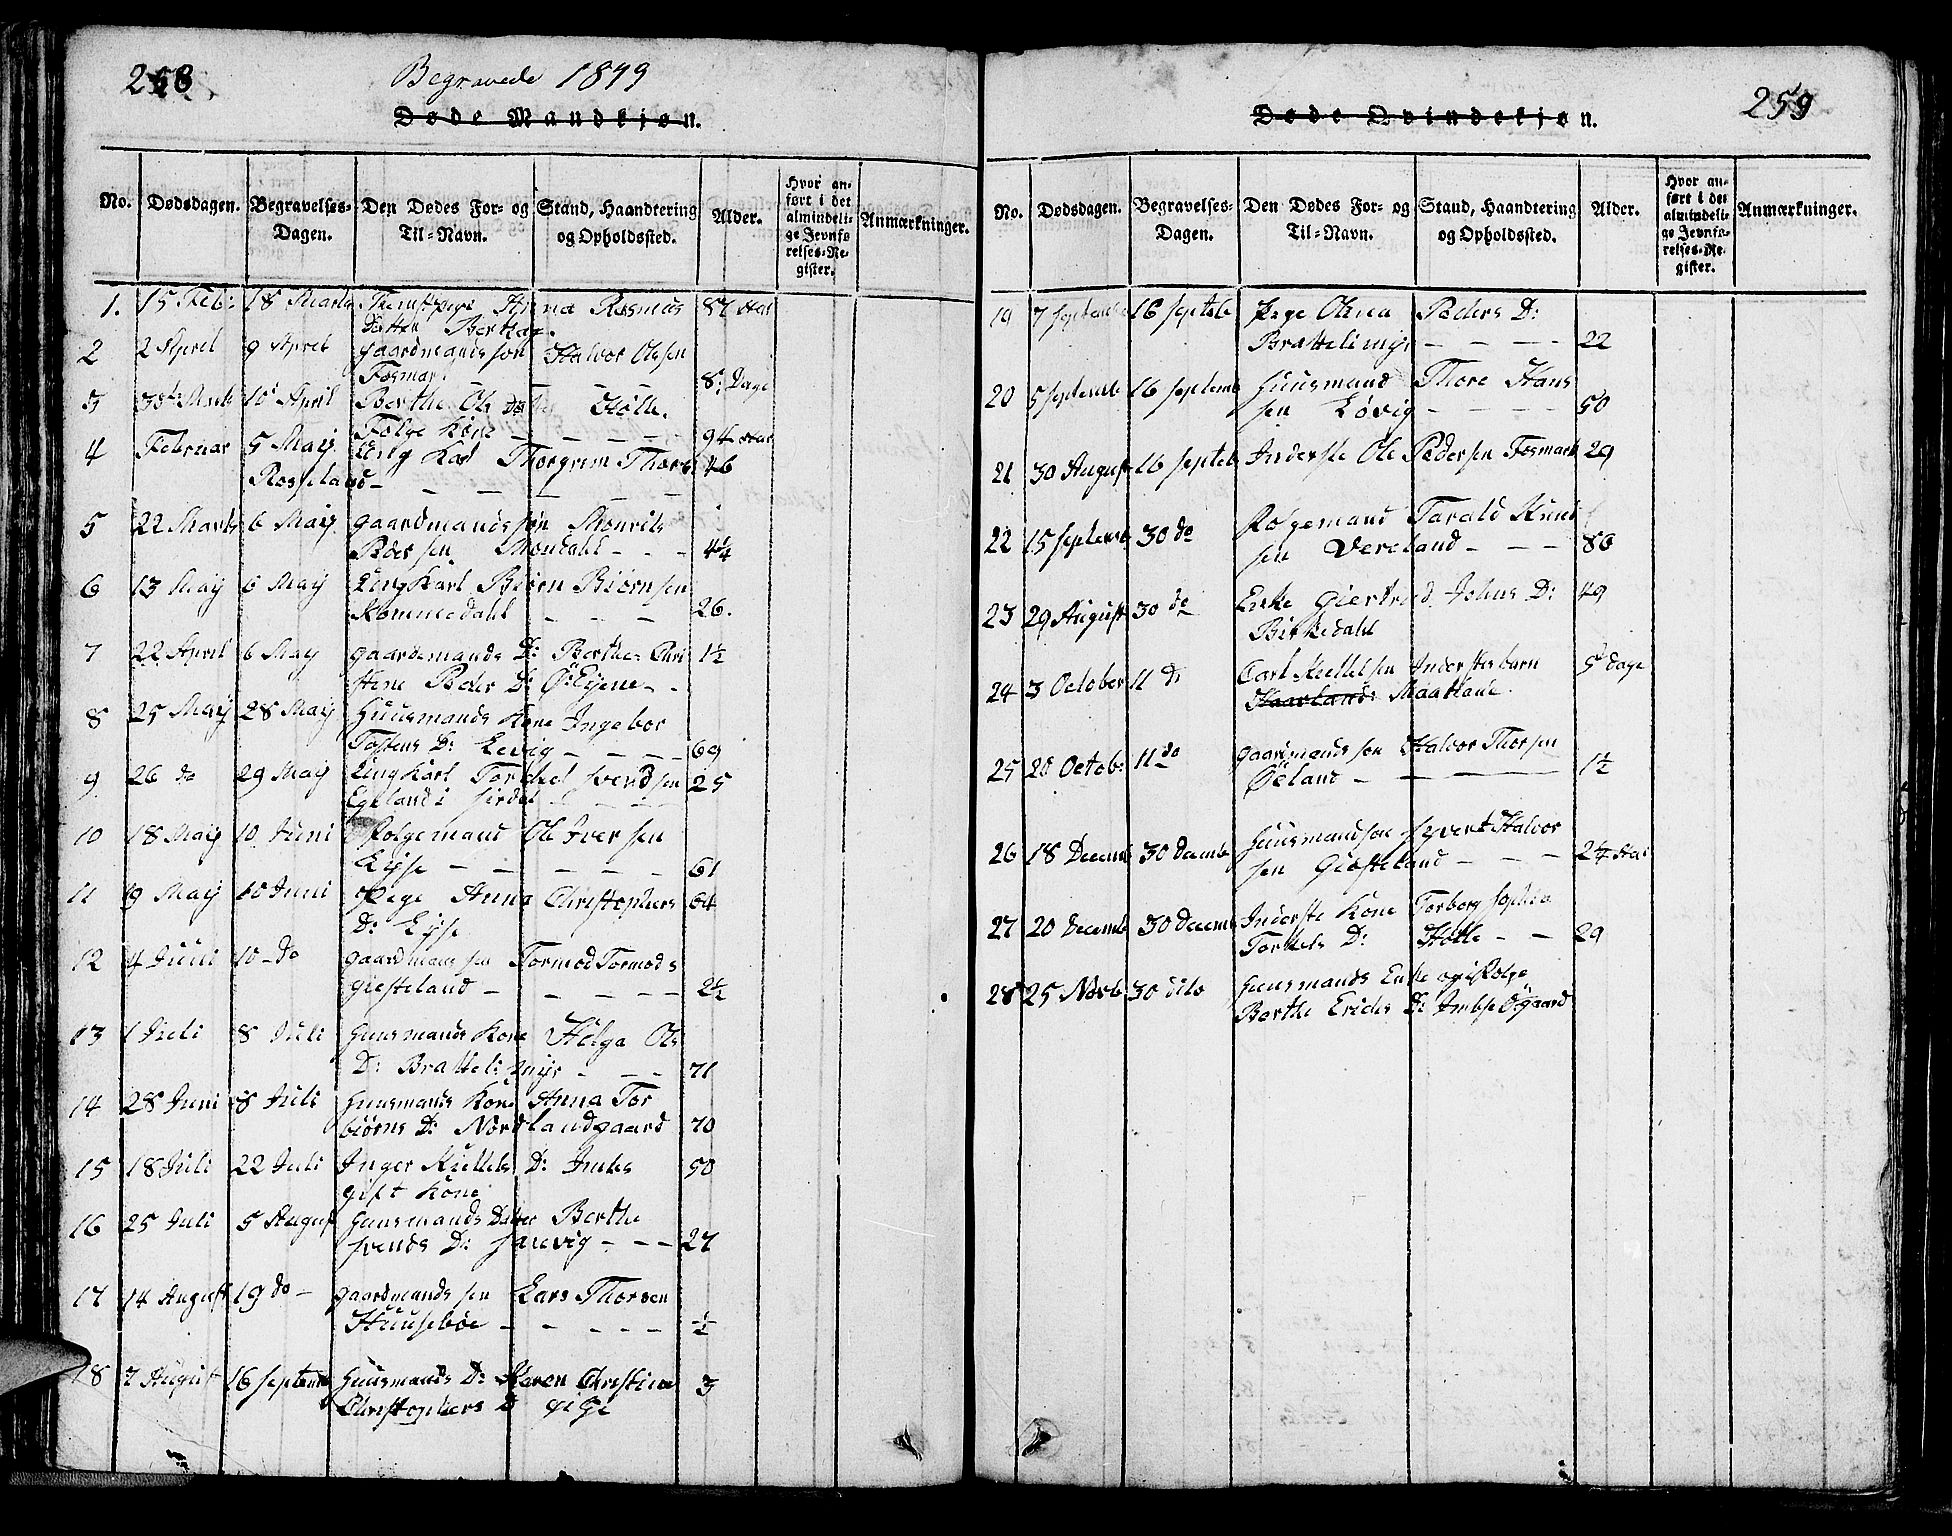 258
Begravede 1849
Døde Mandkjøn.
No. Dødsdagen. Begravelses-Dagen. Den Dødes For- og Til-Navn. Stand, Haandtering og Opholdssted. Alder. Hvor anført i det almindelige Jevnførelses-Register. Anmærkninger.
1. 15 Feb: 18 Marts Anna Rasmus 87 Aar
Datter
2 2 April 9 April gaardmands søn Halvor Olsen
Fosmar 8: Dage
3 30 Marts 10 April Berthe Ols Datter Hølle.
Følge Kone – – – – 94 Aar
4 Februar 5 Maij Ung Karl Thorgrim Thors 46
Rosseland – – – –
5 22 Marts 6 Maij gaardmands søn Monrits
Peder sen Mondahl – – – 4¼
6 13 Maij 6 Maij Ung Karl Biørn Biørnsen
Kommedahl – – – 26.
7 22 April 6 May gaardemands D: Berthe Chri 1½
stene Peder D: Øiene – –
8 25 Maij 28 Maij Huusmands Kone Ingebor
Tostens D: Levig – – – 69
9 26 do 29 Maij Ung Karl Torkel Svendsen 25
Egeland i Sirdal – – –
10 18 Maij 10 Juni Følgemand Ole Iversen
Eije – – – – – 61
11 9 Maij 10 Juni Pige Anna Christophers 64
D: Eije
12 4 Juni 10 – do gaardmans søn Tormod Tormods
Giesteland – – – – 2½
13 1 Juli 8 Juli Huusmands Kone Helga Ols
D: Bratteli myr – – – 71
14 28 Juni 8 Juli Huusmands Kone Anna Tor
biørns D: Nordlandgaard 70
15 18 Juli 22 Juli Inger Kittels D: 50
gift Kone
16 25 Juli 5 August Huusmands Datter Berthe
Svends D: – – – 27
17 14 August 19 do – gaardmands søn Lars Thorsen
Huusebøe – – – – – ½
18 7 August 16 Septemb Huusmands D: Karen Christine 3
Christophers D
259
Døde Qvindekjøn.
No. Dødsdagen. Begravelses-Dagen. Den Dødes For- og Til-Navn. Stand, Haandtering og Opholdssted. Alder. Hvor anført i det almindelige Jevnførelses-Register. Anmærkninger.
19 7 September 16 Septeb Pige Olena Peders D:
Brattelimyr – – – – 22
20 5 Septemb 16 Septemb Huusmand Thore Hans
sen Løvig – – – – 50
21 30 August 16 Septeb Inderste Ole Pedersen Fosmark 29
22 15 Septemb 30 do Følgemand Tarald Knud
sen Vereland – – – 86
23 29 August 30 do Enke Giertrud Johns D: 49
Birkedahl
24 3 October 11 D: Carl Kittelsen Inderstes barn 5 Dage
Haarland: Maatlane.
25 28 Octob: 11 do gaardmands søn Halvor Thorsen
Øeland – – – – – 1½
26 18 Decemb 30 Decembe Huusmandsøn Syvert Halvor
sen Giesteland – – – 24 Aar
27 20 Decemb 30 Decemb Inderste Kone Torborg Sophia
Torkels D: Hølle – – 29
28 25 Novb 30 dito Huusmands Enke og i Følge
Berthe Erichs D: Øgaard